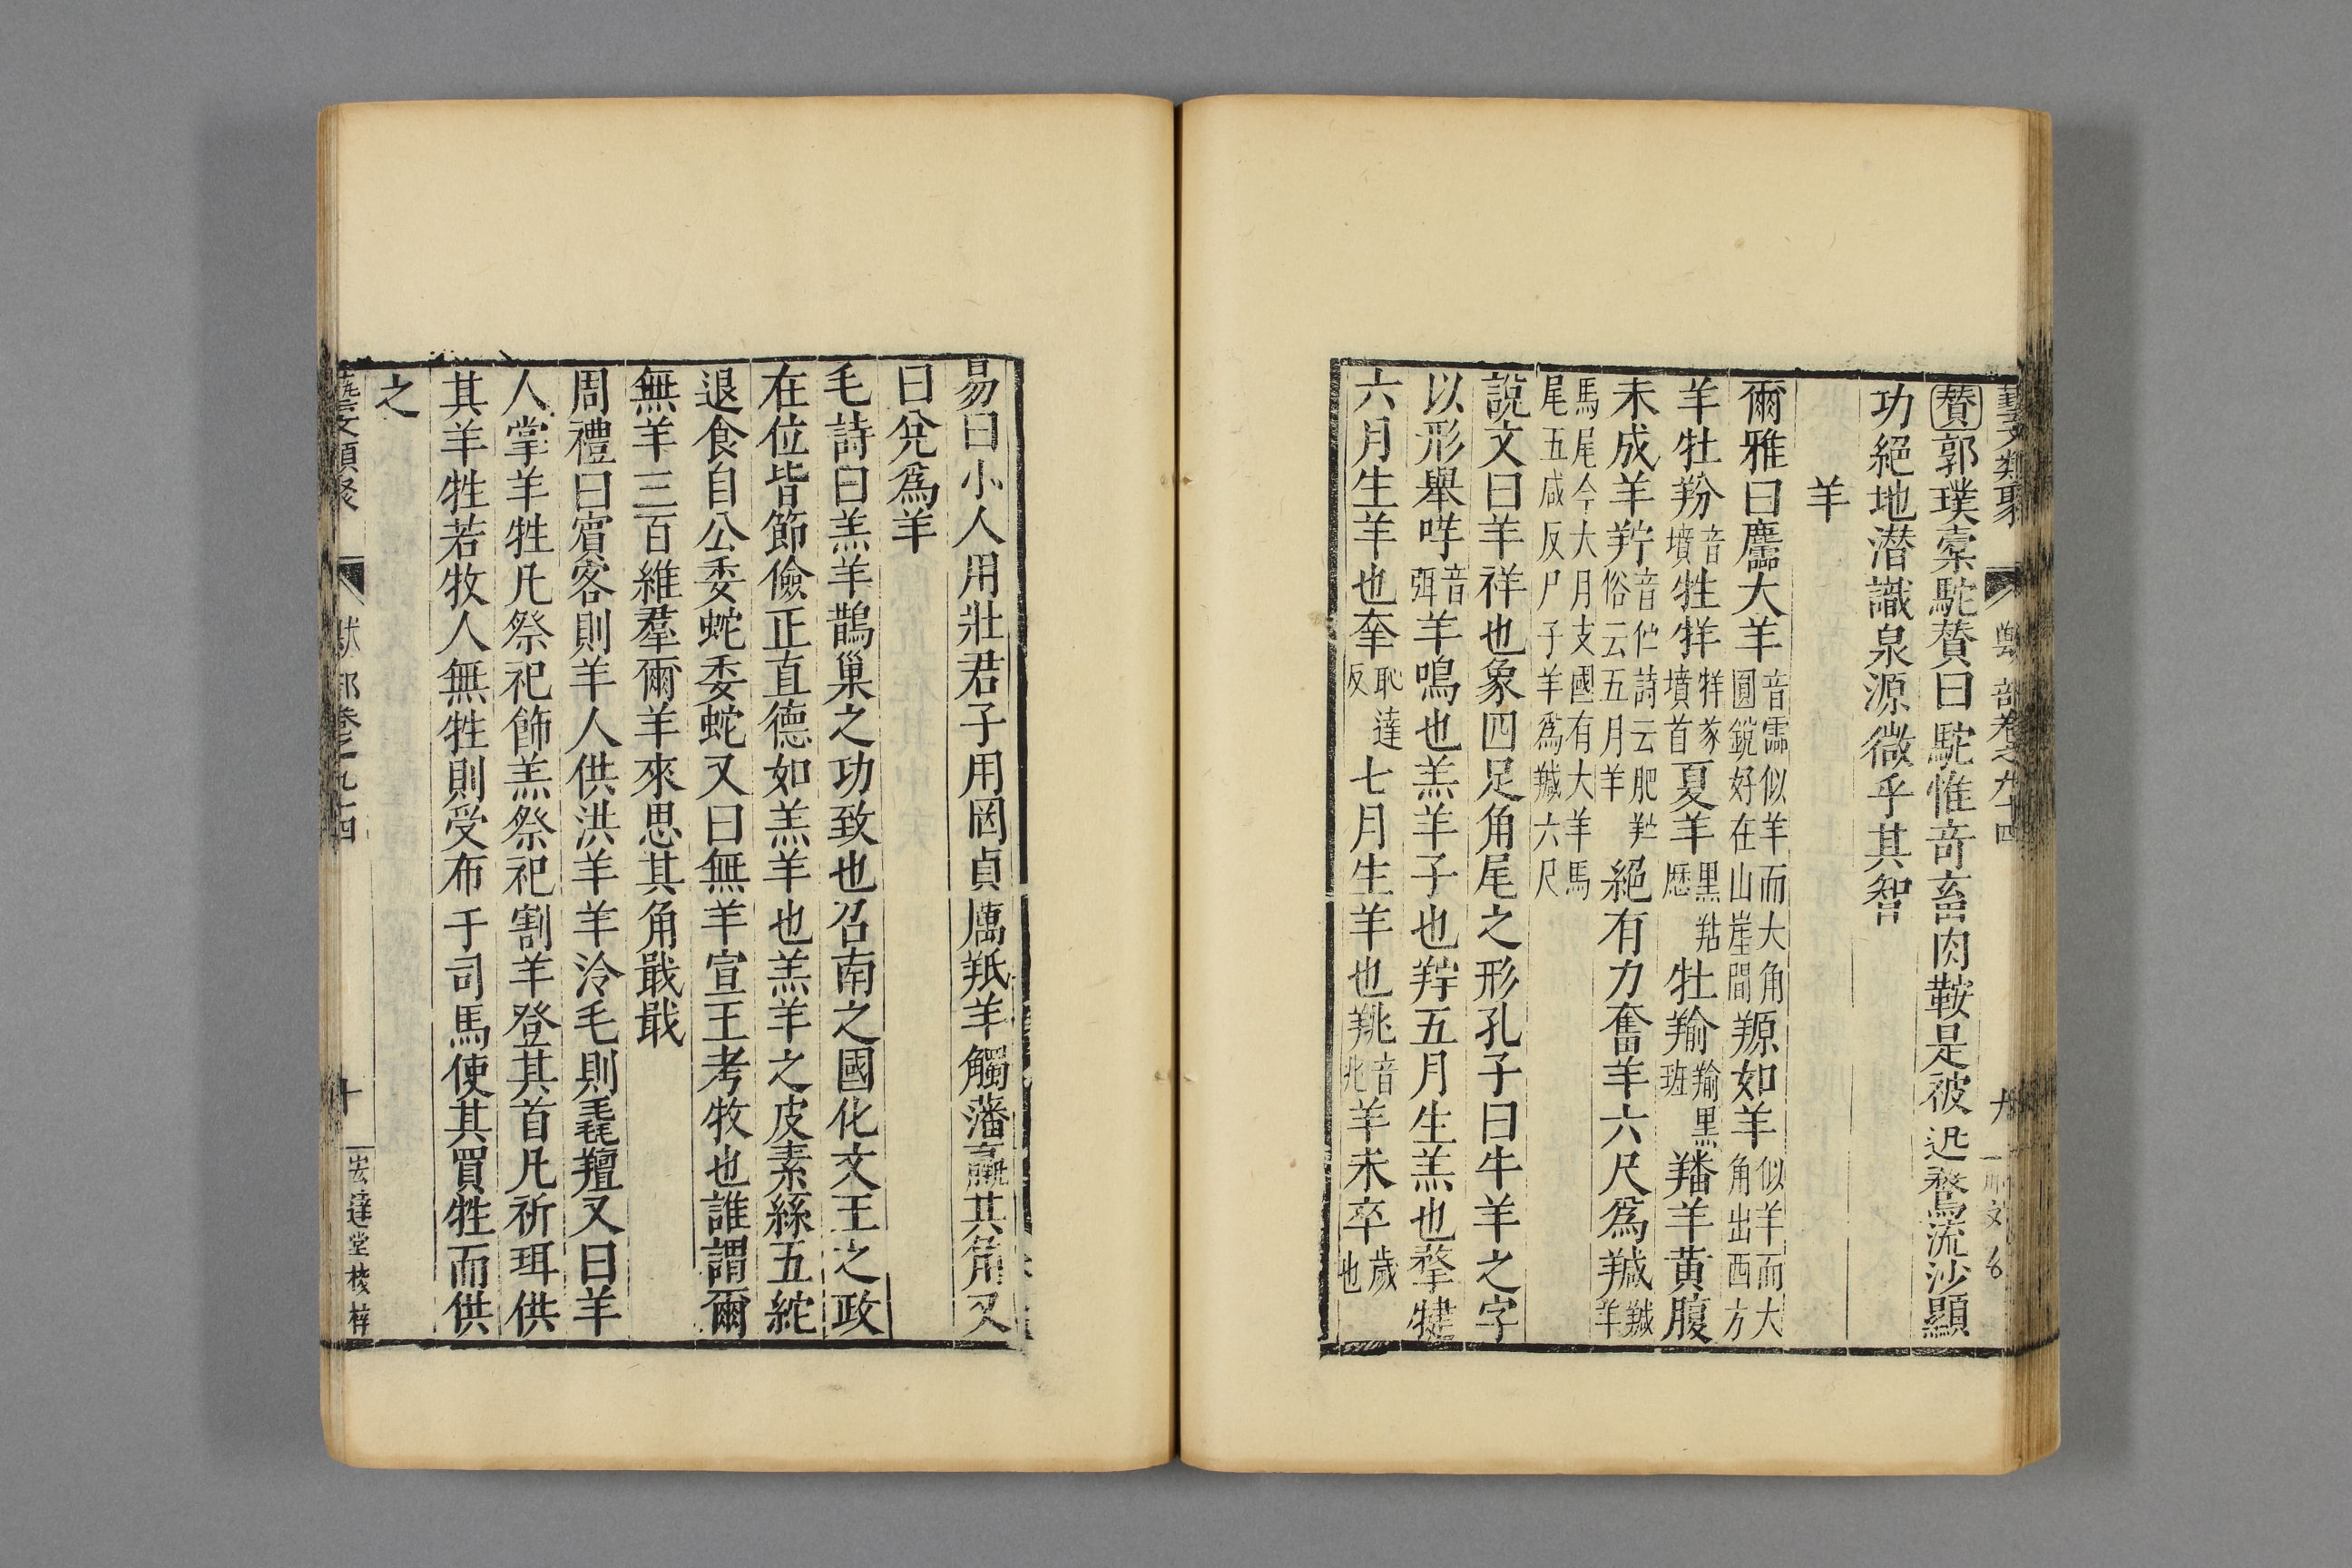 藝文類聚 獸部卷之九十四 九
贊郭璞槖駝贊曰駝惟竒畜肉鞍是被迅騖流沙顯
功絕地潛識泉源微乎其智
羊
爾雅曰麢大羊音霝似羊而大角圓銳好在山崖間羱如羊似羊而大角出西方
羊牡羒音墳牲牂牂豕墳首夏羊黑羖䍽牡羭羭黑班羳羊黃腹
未成羊羜音伫詩云肥羜俗云五月羊絕有力奮羊六尺爲羬羬羊
馬尾今大月支國有大羊馬尾五咸反尸子羊爲羬六尺
說文曰羊祥也象四足角尾之形孔子曰牛羊之字
以形舉咩音弭羊鳴也羔羊子也羜五月生羔也㹂犍
六月生羊也羍恥達反七月生羊也羜音兆羊未卒歲也
易曰小人用壯君子用罔貞厲羝羊觸藩羸其角又
曰兊爲羊
毛詩曰羔羊鵲巢之功致也召南之國化文王之政
在位皆節儉正直德如羔羊也羔羊之皮素絲五紽
退食自公委蛇委蛇又曰無羊宣王考牧也誰謂爾
無羊三百維羣爾羊來思其角戢戢
周禮曰賓客則羊人供洪羊羊泠毛則毳羶又曰羊
人掌羊牲凡祭祀飾羔祭祀割羊登其首凡祈珥供
其羊牲若牧人無牲則受布于司馬使其買牲而供
之
藝文類聚 獸部卷之九十四 十 宏達堂校梓